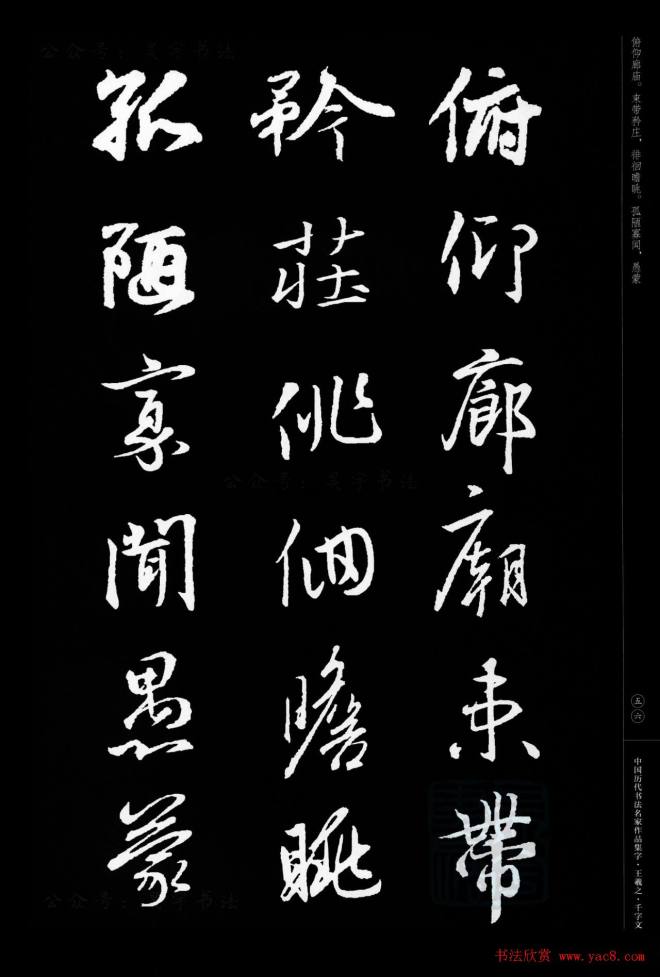 俯仰廊廟束帶
矜莊俳佪瞻眺
孤陋寡聞愚蒙
俯仰廊庙。束带矜庄，徘徊瞻眺。孤陋寡闻，愚蒙
五六
中国历代书法名家作品集字·王羲之·千字文
书法欣赏 www.yac8.com